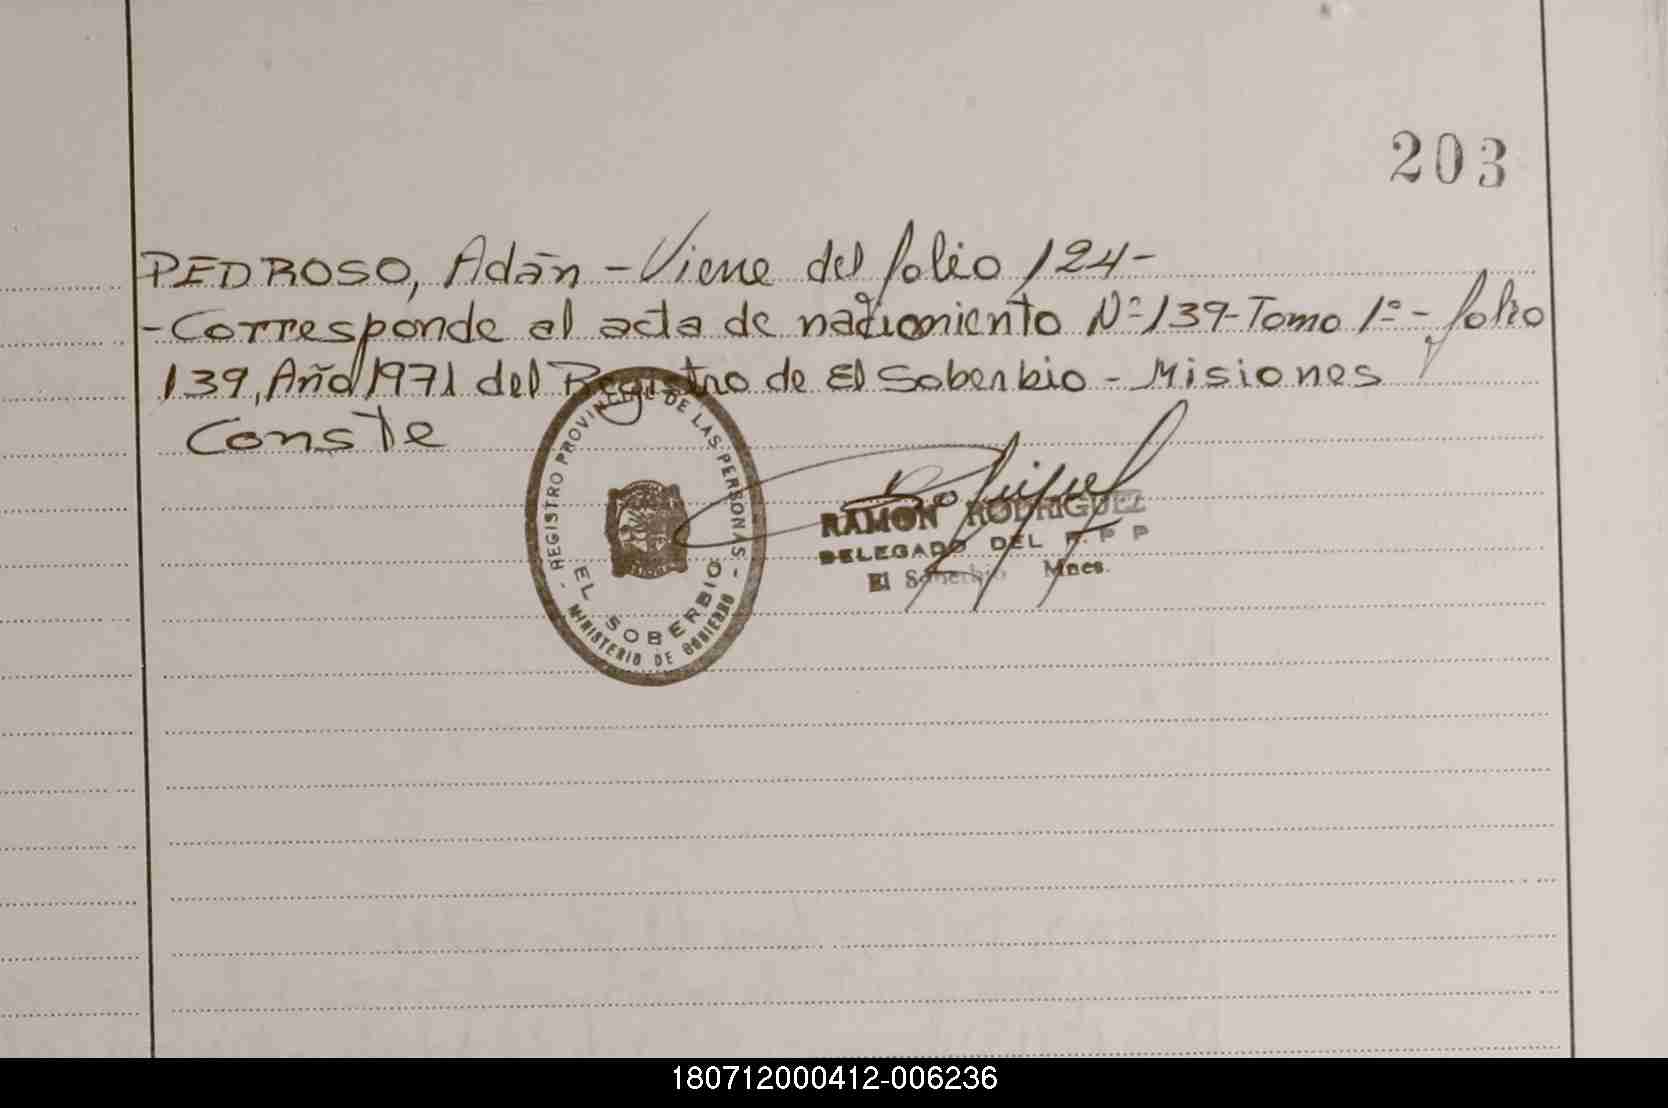 203
PEDROSO, Adán - Viene del folio 124-
- Corresponde al acta de nacimiento Nº 139 - Tomo 1º - folio
139, Año 1971 del Registro de El Soberbio - Misiones
Conste
- REGISTRO PROVINCIAL DE LAS PERSONAS -
EL SOBERBIO
MINISTERIO DE GOBIERNO
RAMON RODRIGUEZ
DELEGADO DEL R. P P
El Soberbio Mnes.
180712000412-006236